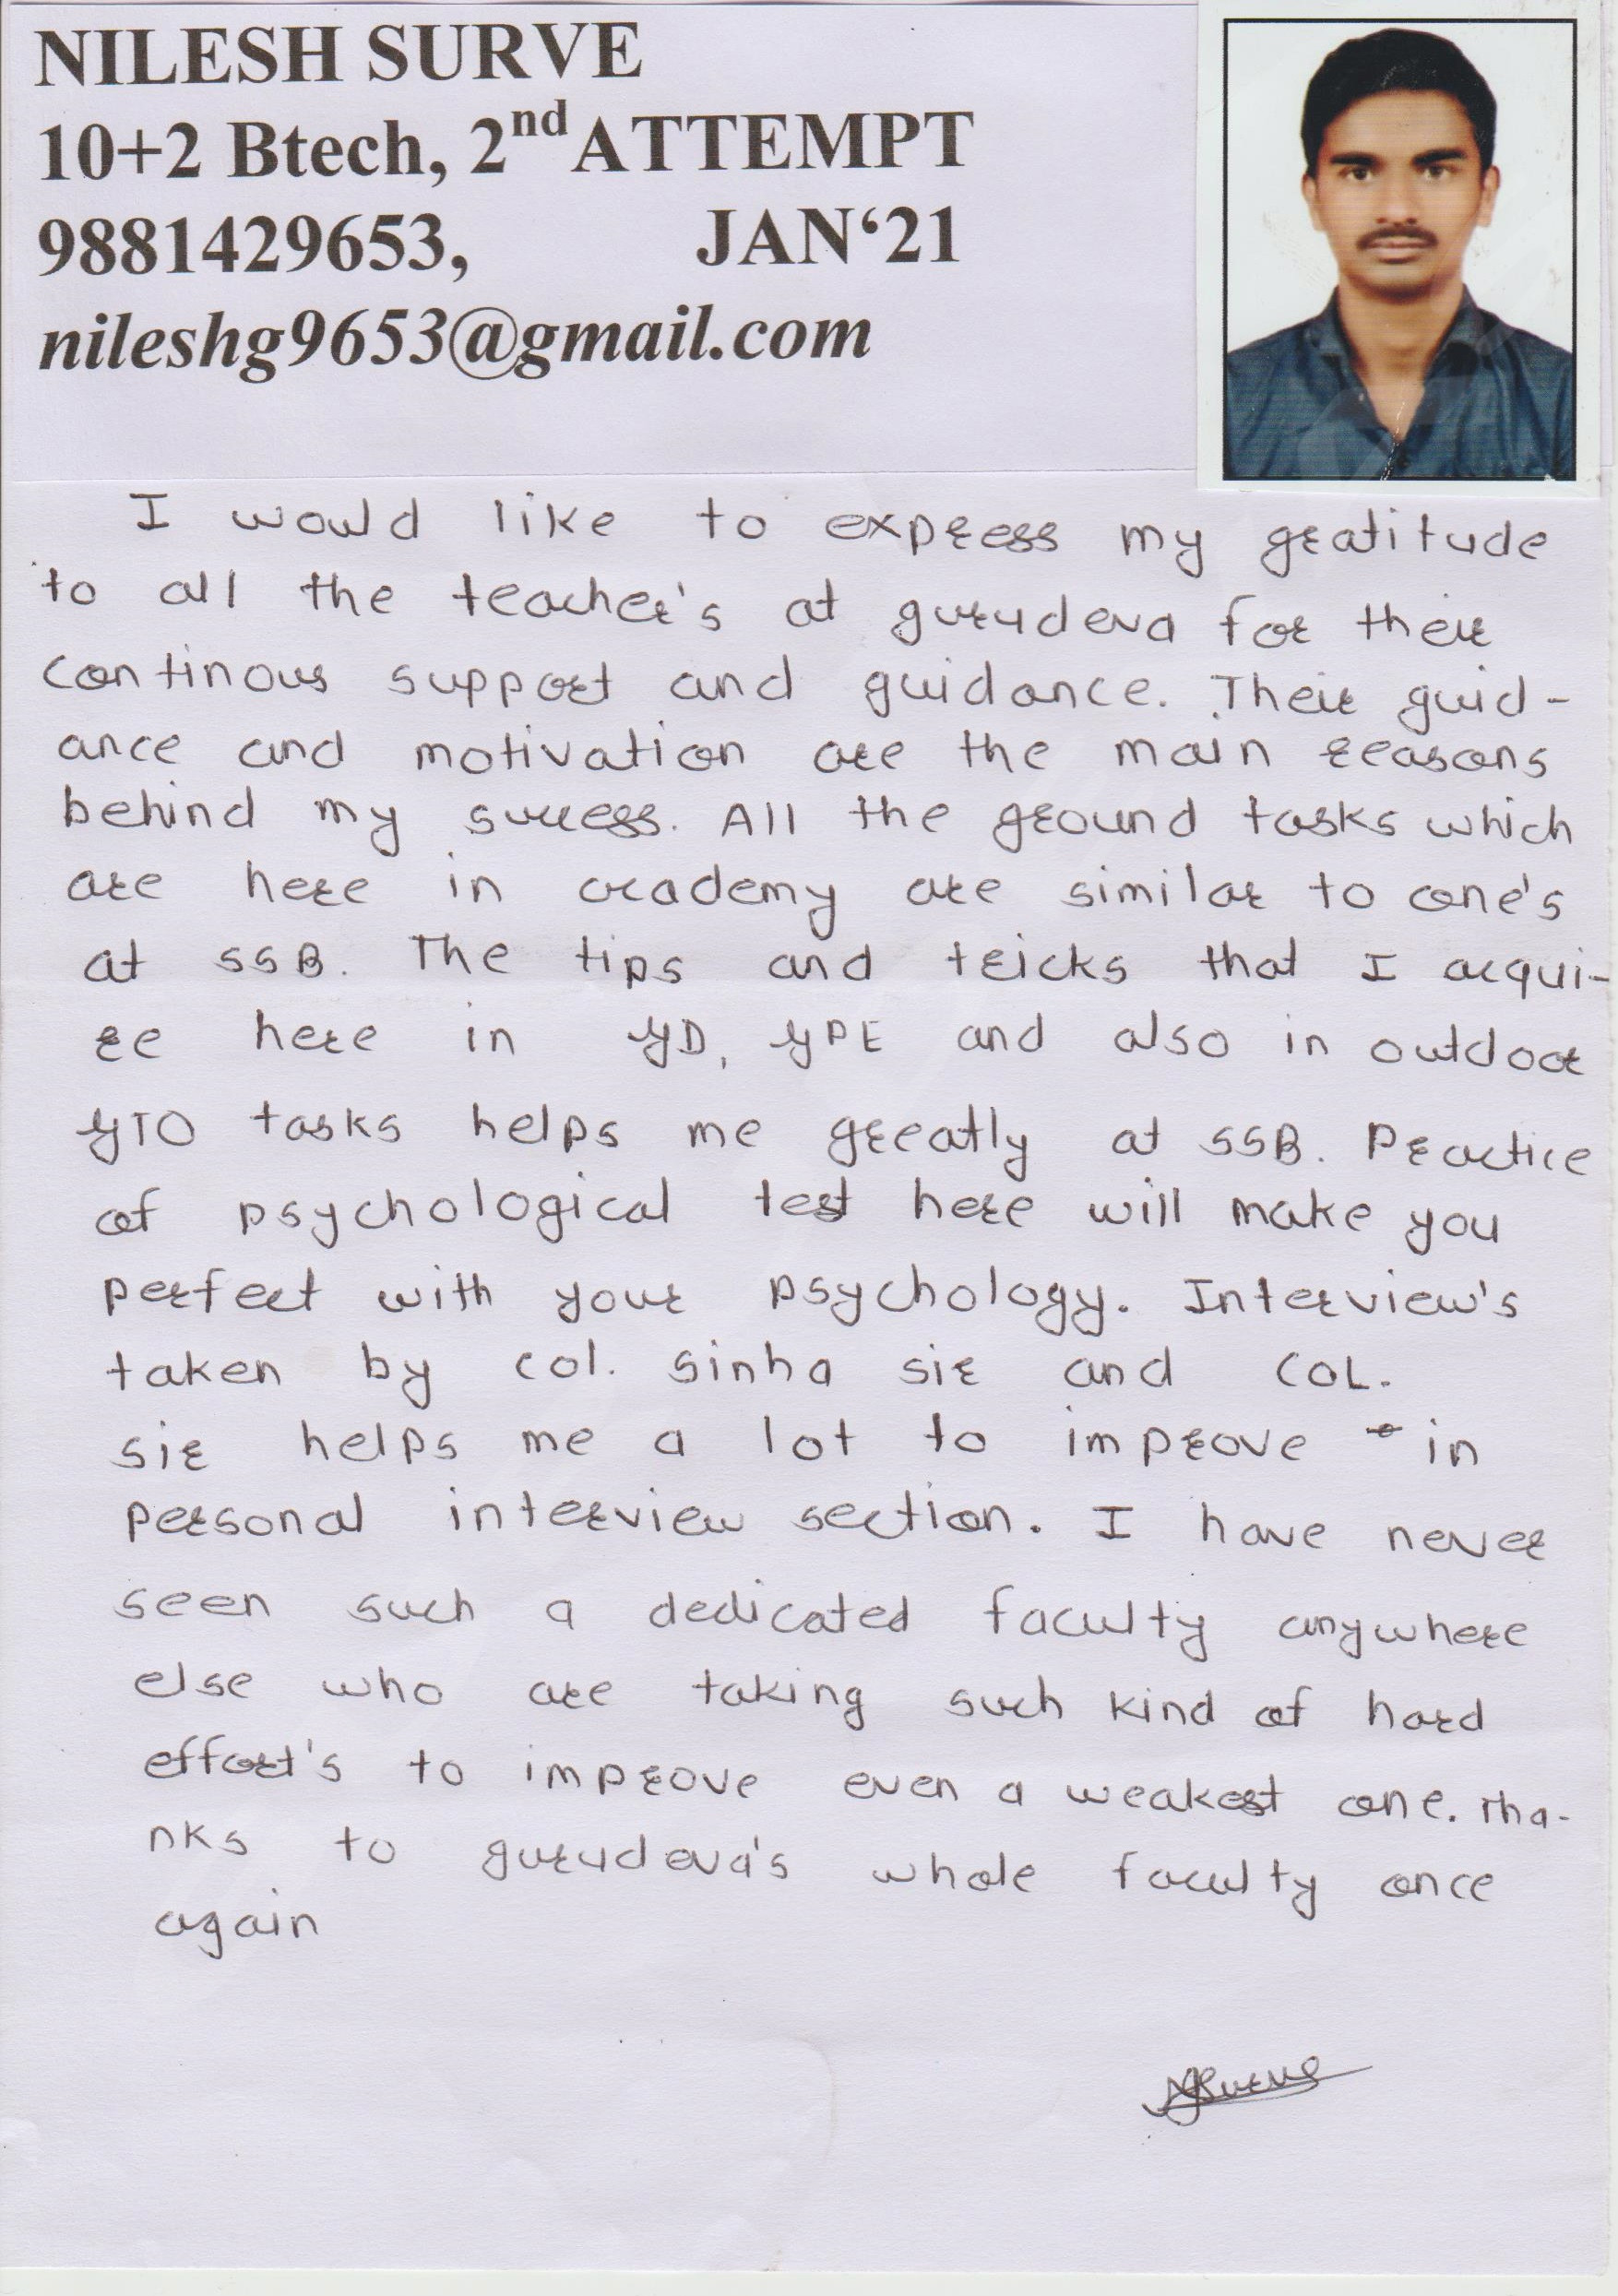 NILESH SURVE
10+2 Btech, 2nd ATTEMPT
9881429653, JAN‘21
nileshg9653@gmail.com
I would like to express my gratitude
to all the teacher's at gurudeva for their
continous support and guidance. Their guid-
ance and motivation are the main reasons
behind my success. All the ground tasks which
are here in academy are similar to one's
at SSB. The tips and tricks that I acqui-
re here in GD, GPE and also in outdoor
GTO tasks helps me greatly at SSB. Practice
of psychological test here will make you
perfect with your psychology. Interview's
taken by col. sinha sir and COL.
sir helps me a lot to improve in
personal interview section. I have never
seen such a dedicated faculty anywhere
else who are taking such kind of hard
effort's to improve even a weakest one. Tha-
nks to gurudeva's whole faculty once
again
NGSurve